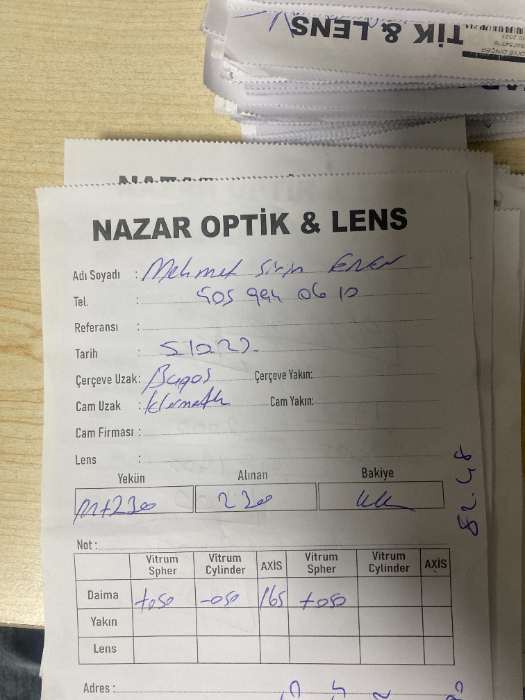 TİK & LENS
NAZAR OPTİK & LENS
Adı Soyadı : Mehmet Şirin Eren
Tel. : 505 994 06 10
Referansı :
Tarih :
Çerçeve Uzak: Bugos Çerçeve Yakın:
Cam Uzak : Cam Yakın:
Cam Firması :
Lens :
Yekün Alınan Bakiye
2200
Not :
Vitrum Spher Vitrum Cylinder AXİS Vitrum Spher Vitrum Cylinder AXİS
Daima +050 -050 165 +050
Yakın
Lens
Adres :
82.48